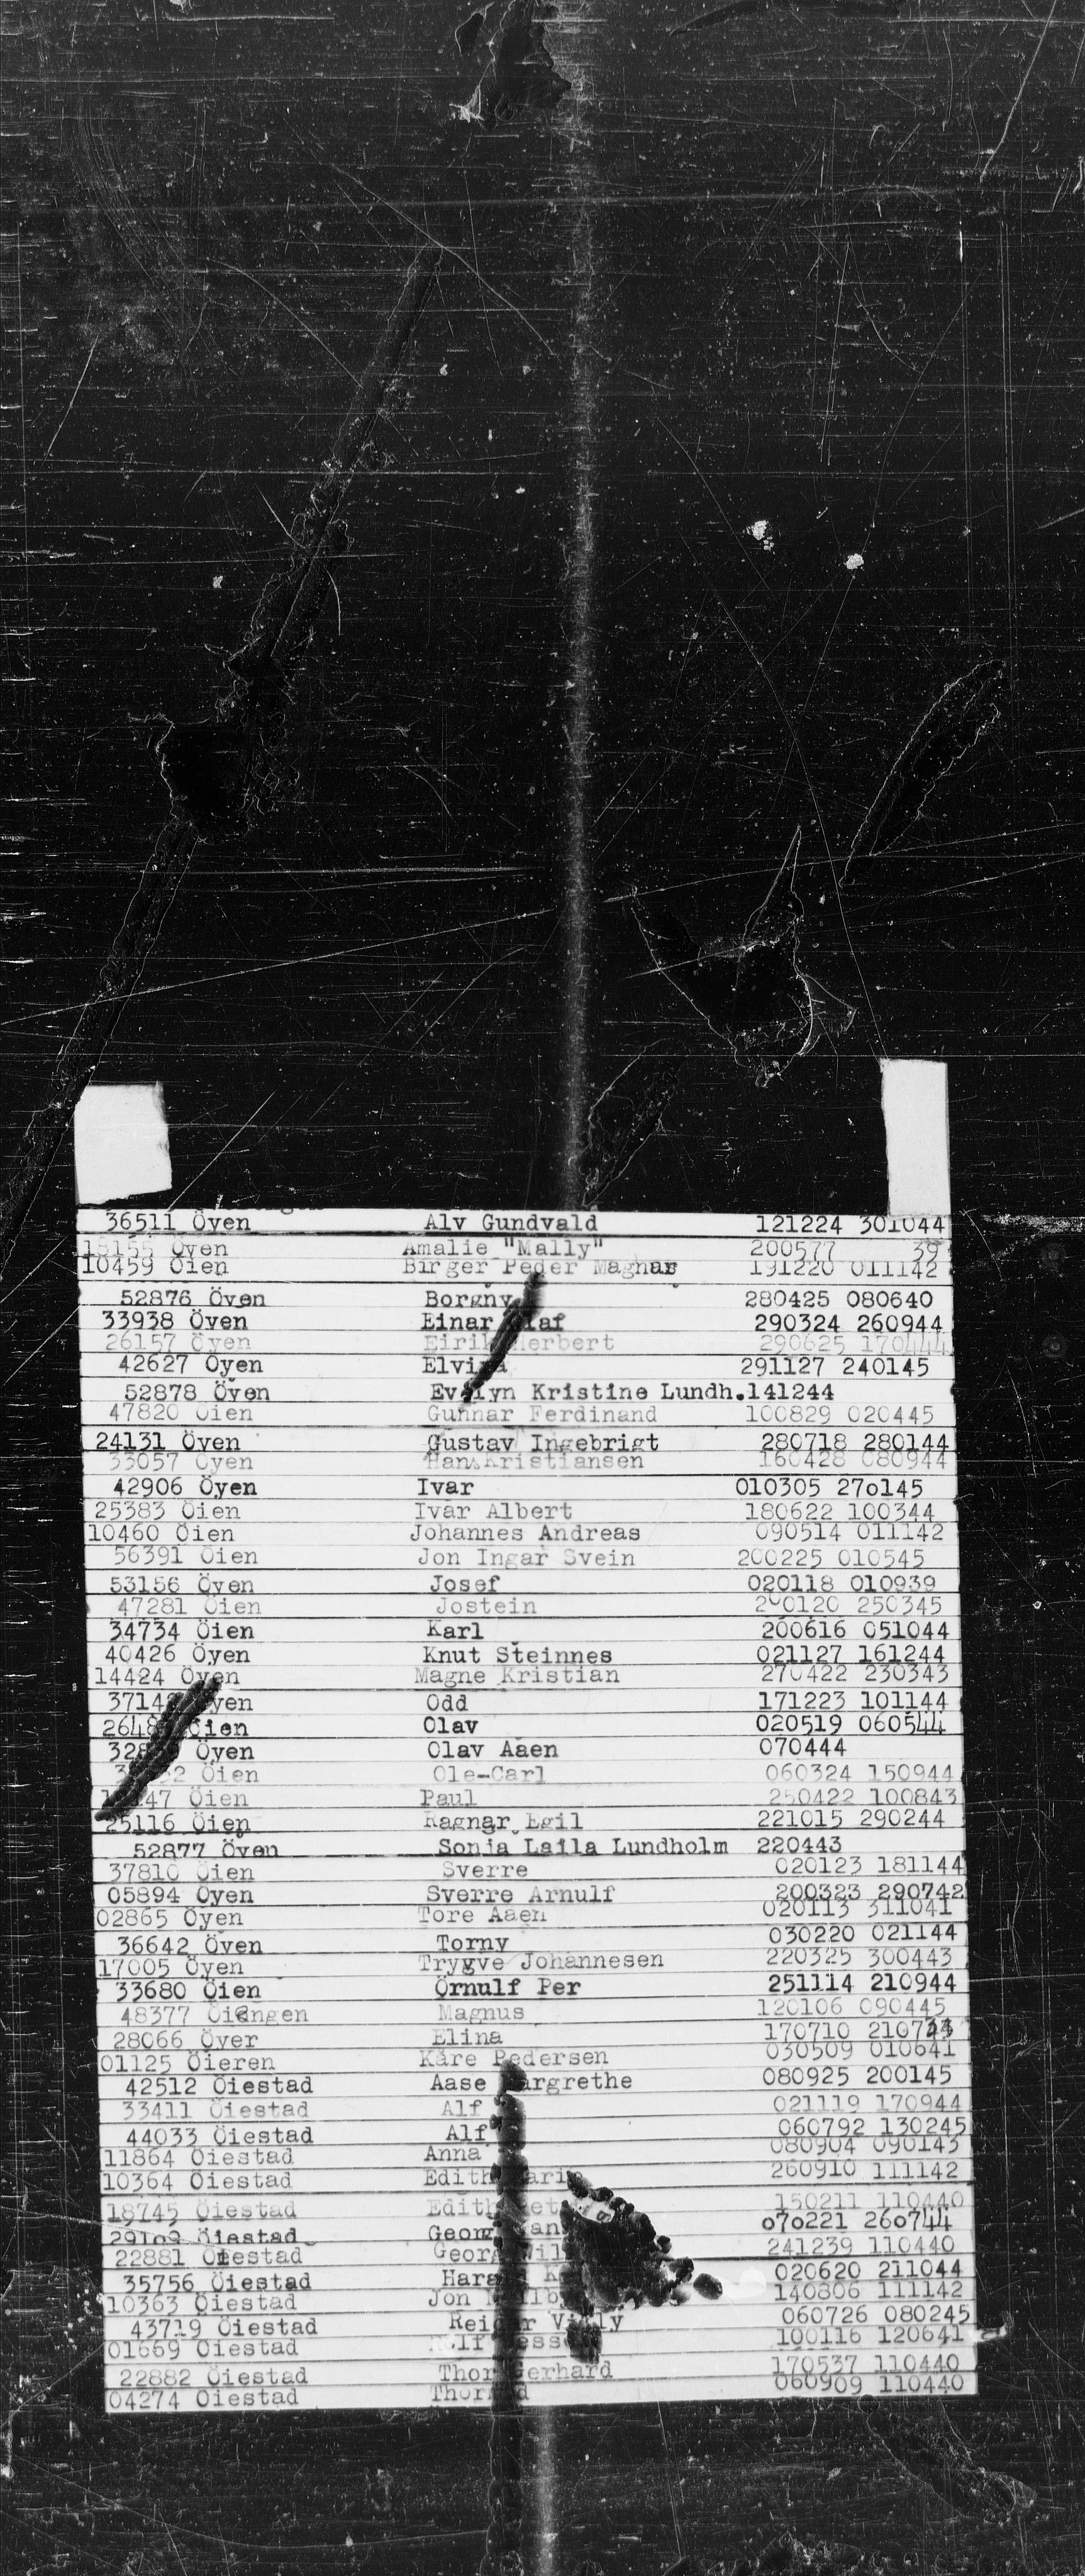 36511 Öyen Alv Gundvald 121224 301044
Öyen Amalie "Mally" 200577 39
10459 Öien Birger Peder Magnar 191220 011142
52876 Öyen Borgny 280425 080640
33938 Öyen Einar 290324 260944
26157 Öyen Eirik Herbert 290625 170444
42627 Öyen 291127 240145
52878 Öyen Evelyn Kristine Lundh.141244
47820 Öien Gunnar Ferdinand 100829 020445
24131 Öyen Gustav Ingebrigt 280718 280144
33057 Öyen Hans Kristiansen 160428 080944
42906 Öyen Ivar 010305 270145
25383 Öien Ivar Albert 180622 100344
10460 Öien Johannes Andreas 090514 011142
56391 Öien Jon Ingar Svein 200225 010545
53156 Öyen Josef 020118 010939
47281 Öien Jostein 200120 250345
34734 Öien Karl 200616 051044
40426 Öyen Knut Steinnes 021127 161244
14424 Öyen Magne Kristian 270422 230343
Öyen Odd 171223 101144
Öien Olav 020519 060544
Öyen Olav Aaen 070444
Öien Ole-Carl 060324 150944
Öien Paul 250422 100843
25116 Öien Ragnar Egil 221015 290244
52877 Öyen Sonja Laila Lundholm 220443
37810 Öien Sverre 020123 181144
05894 Öyen Sverre Arnulf 200323 290742
02865 Öyen Tore Aaen 020113 311041
36642 Öyen Torny 030220 021144
17005 Öyen Trygve Johannesen 220325 300443
33680 Öien Örnulf Per 251114 210944
48377 Öiengen Magnus 120106 090445
28066 Över Elina 170710
01125 Öieren Kåre Pedersen 030509 010641
42512 Öiestad Aase Margrethe 080925 200145
33411 Öiestad Alf 021119 170944
44033 Öiestad Alf 060792 130245
11864 Öiestad Anna 080904 090143
10364 Öiestad Edith 260910 111142
18745 Öiestad Edith 150211 110440
29109 Öiestad Georg 070221 260744
22881 Öiestad Georg 241239 110440
35756 Öiestad 020620 211044
10363 Öiestad Jon 140806 111142
43719 Öiestad Reidar 060726 080245
01669 Öiestad 100116 120641
22882 Öiestad Thor Gerhard 170537 110440
04274 Öiestad 060909 110440